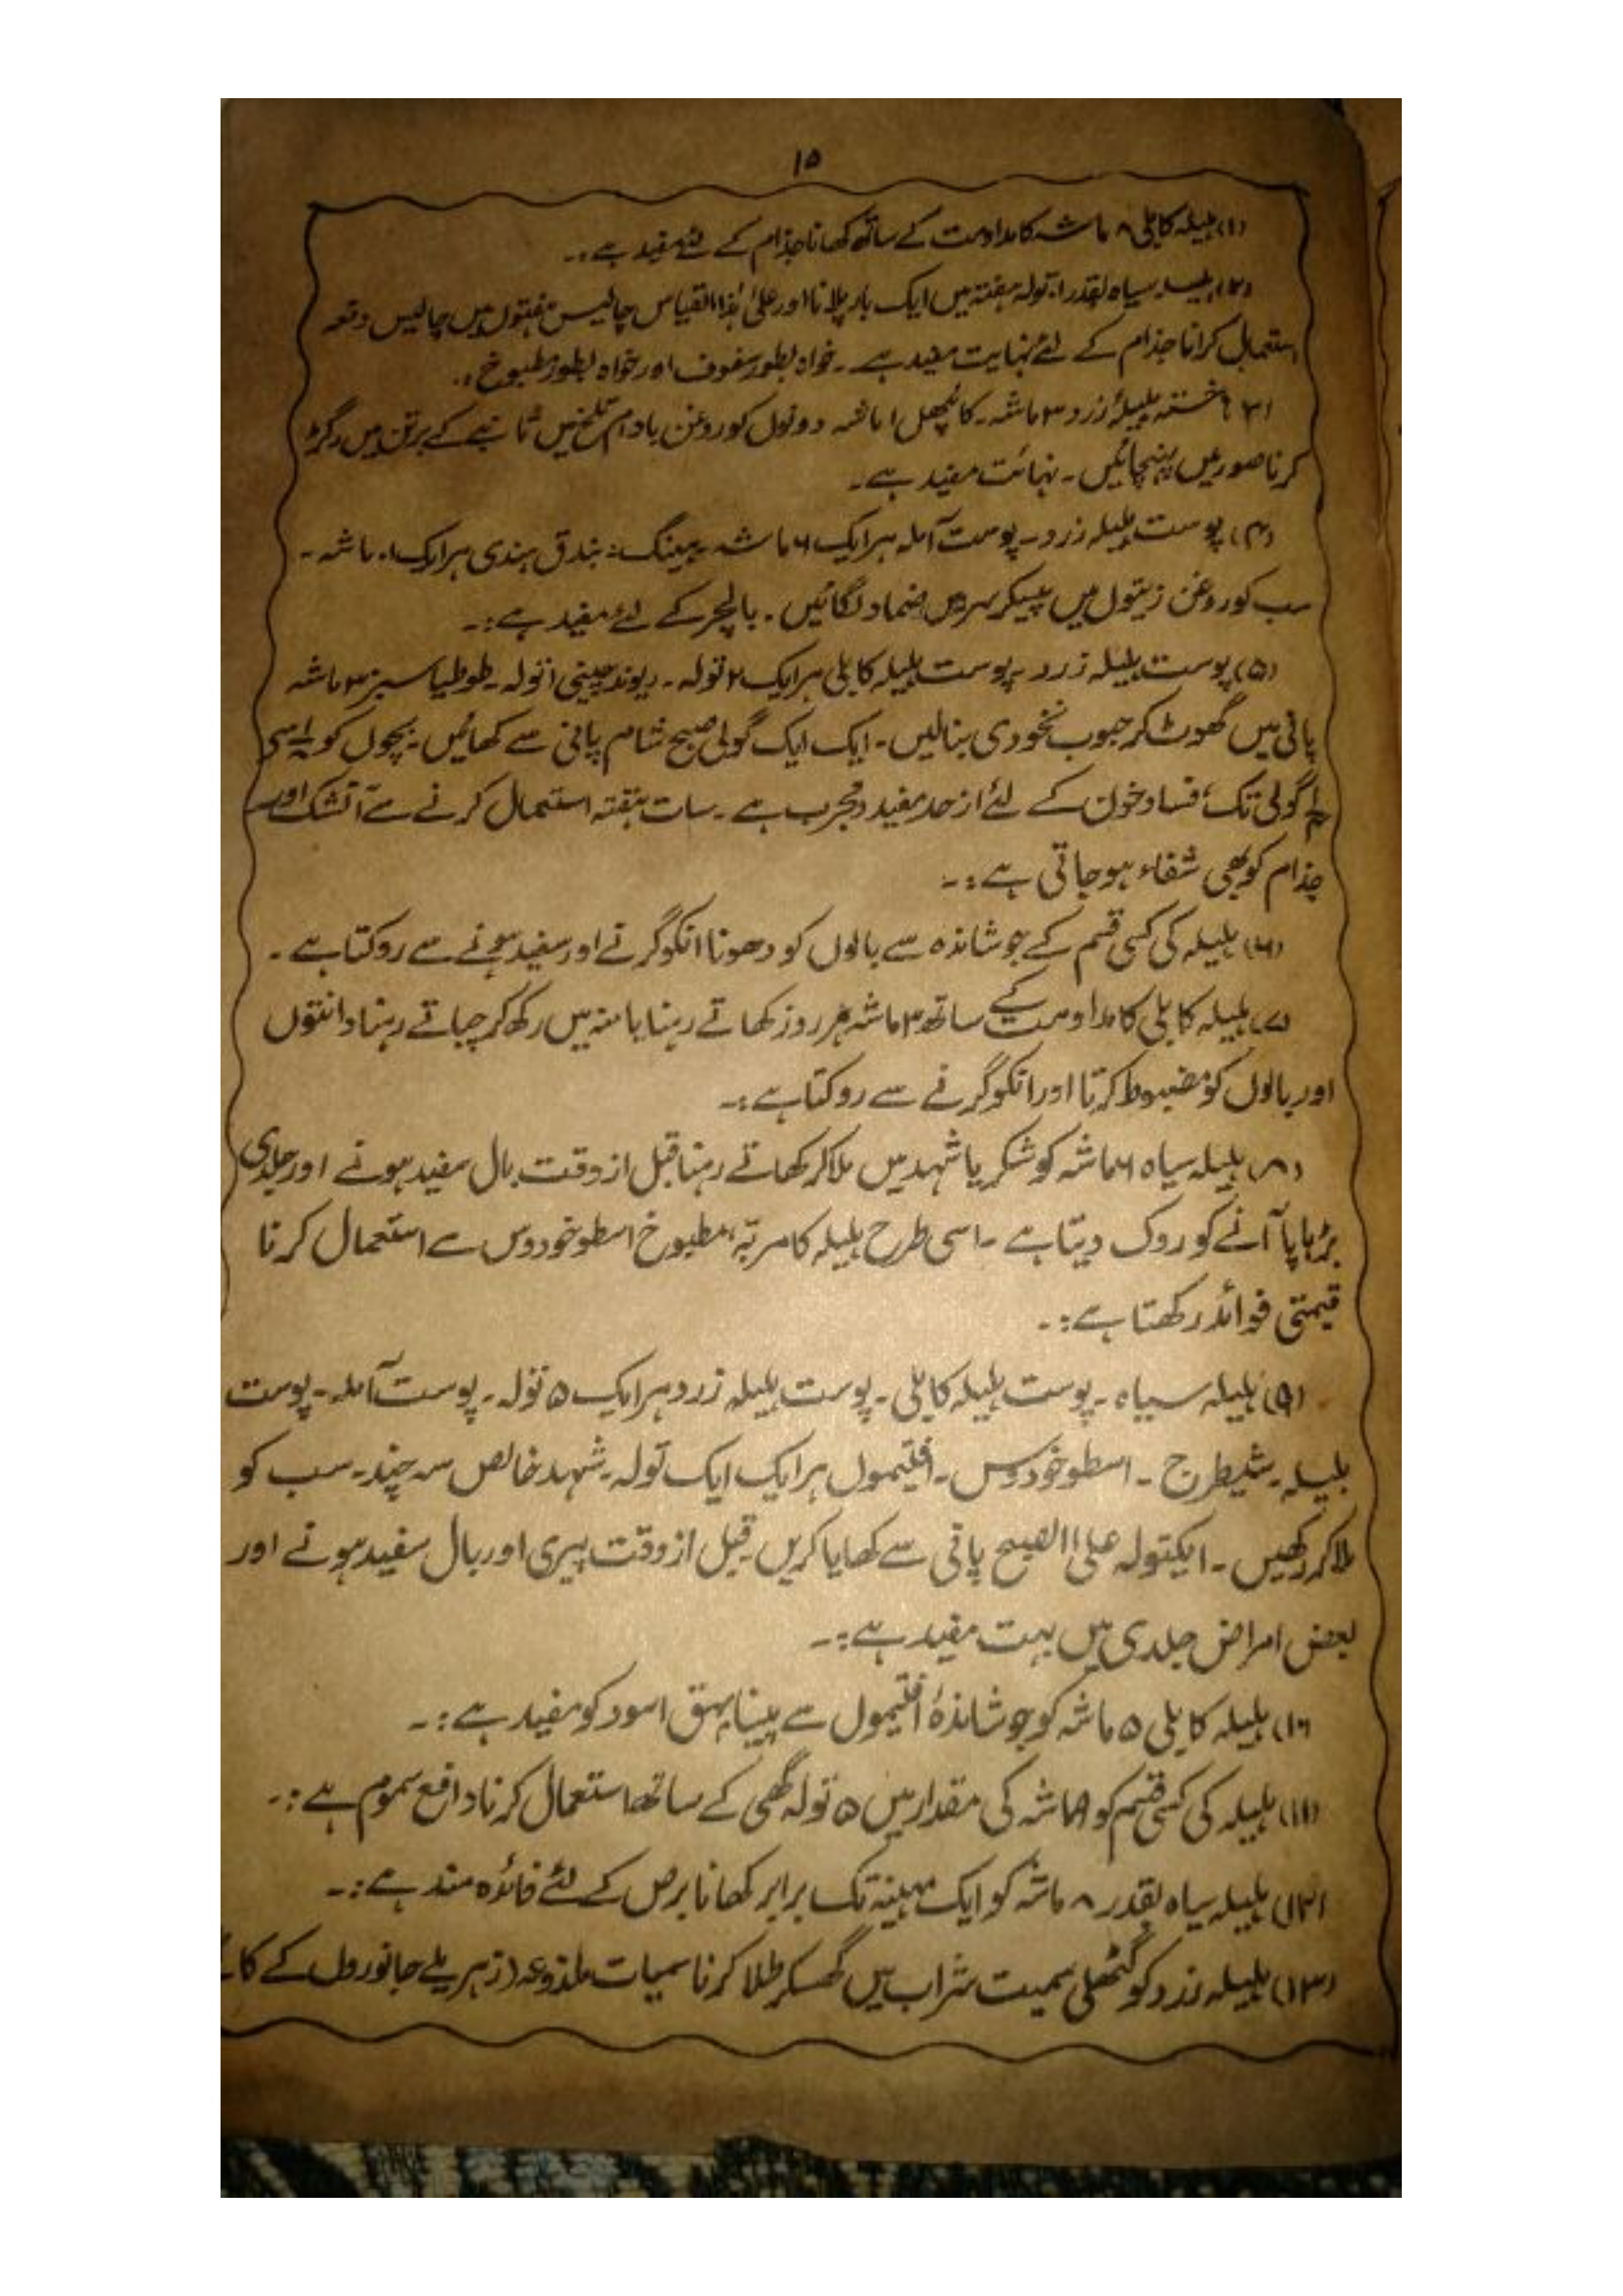 ۱۵
(۱) ہلیلہ کابلی ۸ ماشہ کا مداومت کے ساتھ کھانا جذام کے لئے مفید ہے :۔
(۲) ہلیلہ سیاہ بقدر تولہ ہفتہ میں ایک بار پلانا اور علیٰ ہٰذا القیاس چالیس ہفتوں میں چالیس دفعہ
استعمال کرانا جذام کے لئے نہایت مفید ہے ۔ خواہ بطور سفوف اور خواہ بطور مطبوخ :۔
(۳) خستہ ہلیلۂ زرد ۳ ماشہ ۔ کائپھل ۱ ماشہ دونوں کو روغن بادام تلخ میں تانبے کے برتن میں رگڑ
کر ناصور میں پہنچائیں ۔ نہائت مفید ہے ۔
(۴) پوست ہلیلہ زرد ۔ پوست آملہ ہر ایک ۶ ماشہ ۔ ہینگ : بندق ہندی ہر ایک ۱۰ ماشہ ۔
سب کو روغن زیتوں میں پیسکر سر میں ضماد لگائیں ۔ بالچر کے لئے مفید ہے :۔
(۵) پوست ہلیلہ زرد ۔ پوست ہلیلہ کابلی ہر ایک ۲ تولہ ۔ ریوند چینی ۱ تولہ ۔ طوطیا سبز ۳ ماشہ
پانی میں گھوٹ کر حبوب نخودی بنالیں ۔ ایک ایک گولی صبح شام پانی سے کھائیں ۔ بچوں کو سے
گولی تک ، فساد خون کے لئے از حد مفید و مجرب ہے ۔ سات ہفتہ استعمال کرنے سے آتشک اور
جذام کو بھی شفاء ہو جاتی ہے :۔
(۶) ہلیلہ کی کسی قسم کے جوشاندہ سے بالوں کو دھونا انکو گرنے اور سفید ہونے سے روکتا ہے ۔
(۷) ہلیلہ کابلی کا مداومت کے ساتھ ۳ ماشہ ہر روز کھاتے رہنا یا منہ میں رکھ کر چباتے رہنا دانتوں
اور بالوں کو مضبوط کرتا اور انکو گرنے سے روکتا ہے :۔
(۸) ہلیلہ سیاہ ۶ ماشہ کو شکر یا شہد میں ملا کر کھاتے رہنا قبل از وقت بال سفید ہونے اور جلدی
بڑہاپا آنے کو روک دیتا ہے ۔ اسی طرح ہلیلہ کا مربہ ، مطبوخ اسطوخودوس سے استعمال کرنا
قیمتی فوائد رکھتا ہے :۔
(۹) ہلیلہ سیاہ ۔ پوست ہلیلہ کابلی ۔ پوست ہلیلہ زرد ہر ایک ۵ تولہ ۔ پوست آملہ ۔ پوست
بلیلہ ۔ شیطرج ۔ اسطوخودوس ۔ افتیموں ہر ایک ایک تولہ ۔ شہد خالص سہ چند ۔ سب کو
ملا کر رکھیں ۔ ایکتولہ علی الصبح پانی سے کھایا کریں ۔ قبل از وقت پیری اور بال سفید ہونے اور
بعض امراض جلدی میں بہت مفید ہے :۔
(۱۰) ہلیلہ کابلی ۵ ماشہ کو جوشاندۂ افتیموں سے پینا بہق اسود کو مفید ہے :۔
(۱۱) ہلیلہ کی کسی قسم کو ماشہ کی مقدار میں ۵ تولہ گھی کے ساتھ استعمال کرنا دافع سموم ہے :۔
(۱۲) ہلیلہ سیاہ بقدر ۸ ماشہ کو ایک مہینہ تک برابر کھانا برص کے لئے فائدہ مند ہے :۔
(۱۳) ہلیلہ زرد کو گٹھلی سمیت شراب میں گھسکر طلا کرنا سمیات ملذوعہ (زہریلے جانوروں کے